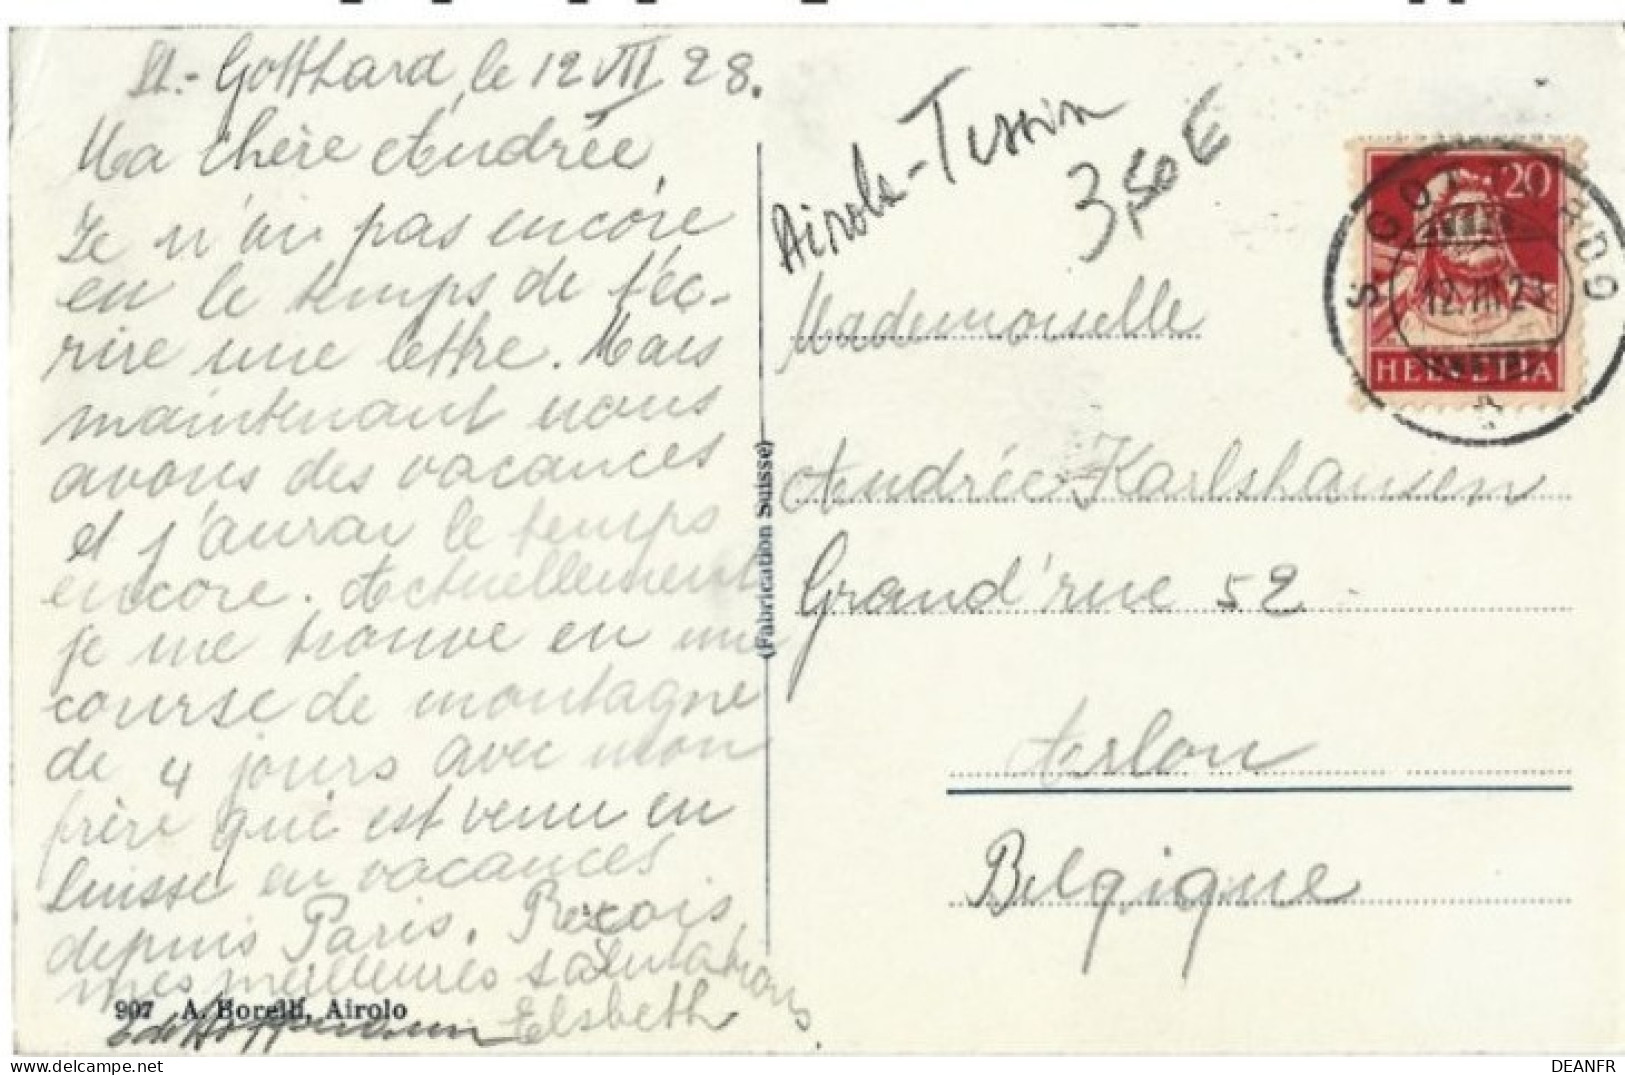 St.-Gotthard, le 12 VII 28.
Ma chère Andrée,
Je n'ai pas encore
eu le temps de t'éc-
rire une lettre. Mais
maintenant nous
avons des vacances
et j'aurai le temps
encore. Actuellement
je me trouve en une
course de montagne
de 4 jours avec mon
frère qui est venu en
Suisse en vacances
depuis Paris. Reçois
mes meilleures salutations
Elsbeth
907 A. Borelli, Airolo
(Fabrication Suisse)
Airolo-Tessin
3,50 €
20
HELVETIA
Mademoiselle
Andrée Karlshausen
Grand'rue 52
Arlon
Belgique
DEANFR